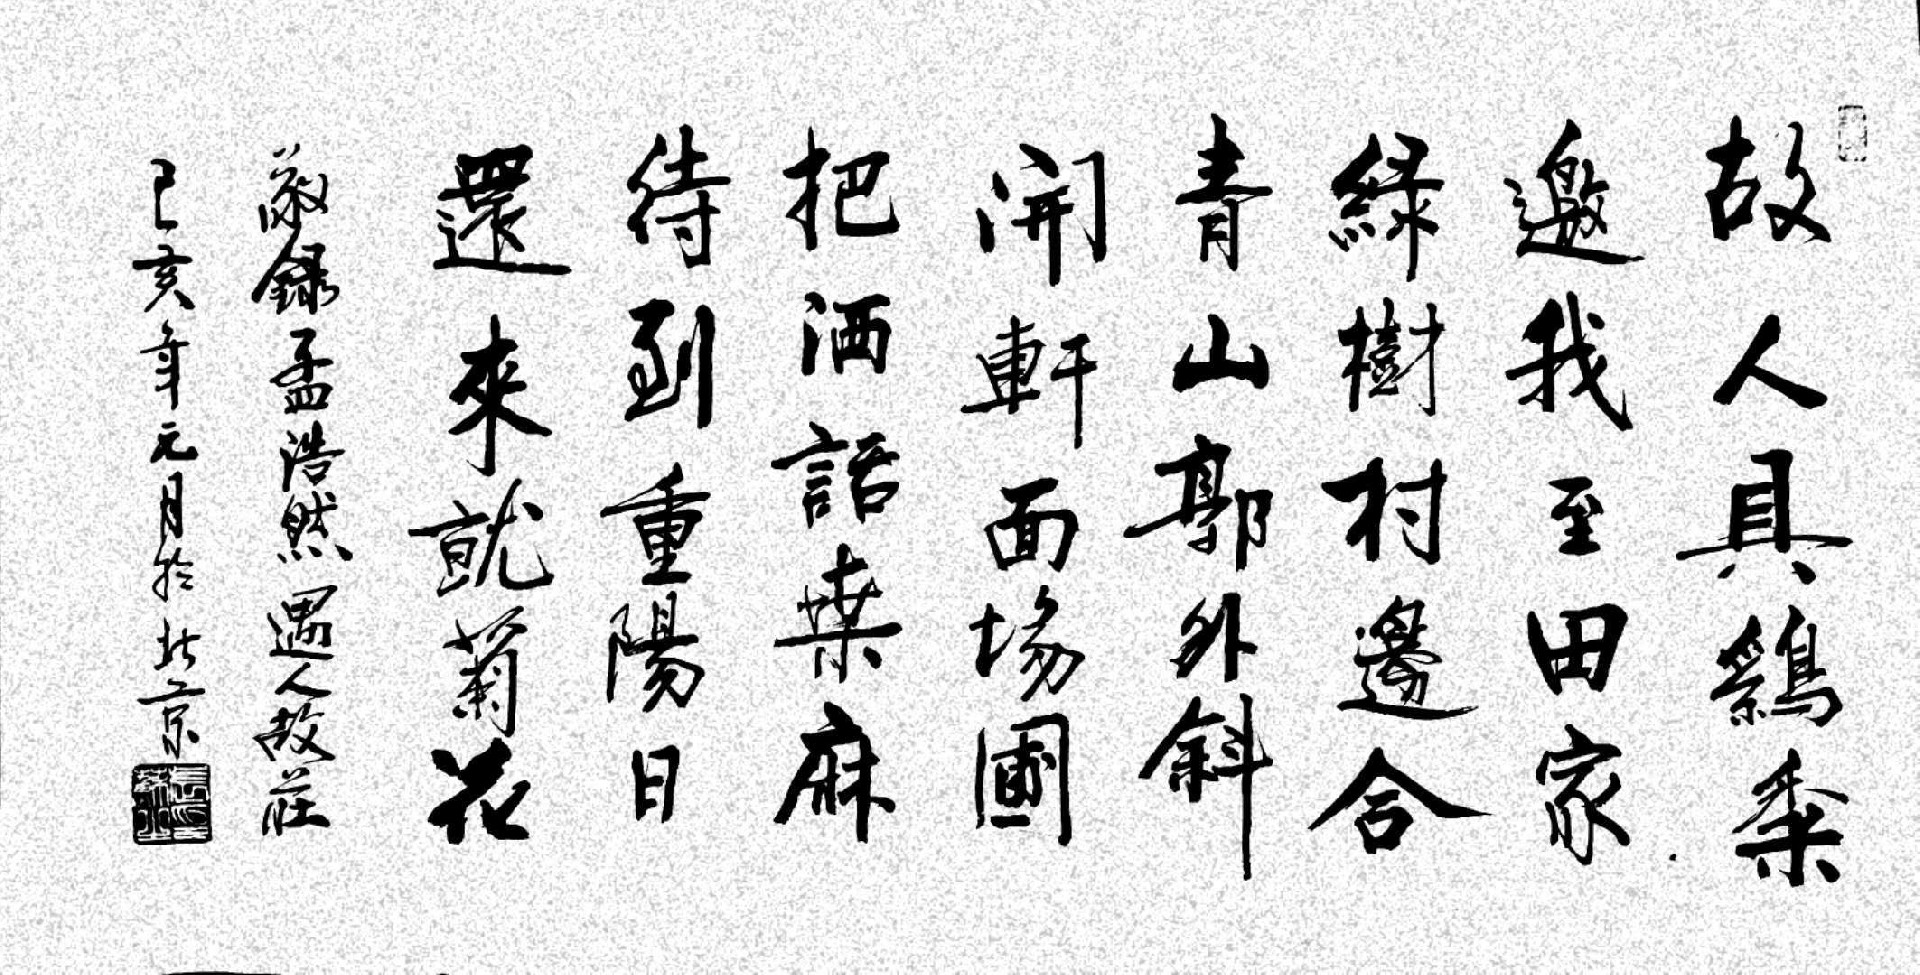 故人具鷄黍
邀我至田家
綠樹村邊合
青山郭外斜
開軒面場圃
把酒話桑麻
待到重陽日
還來就菊花
敬錄孟浩然遇人故莊
己亥年元月於北京